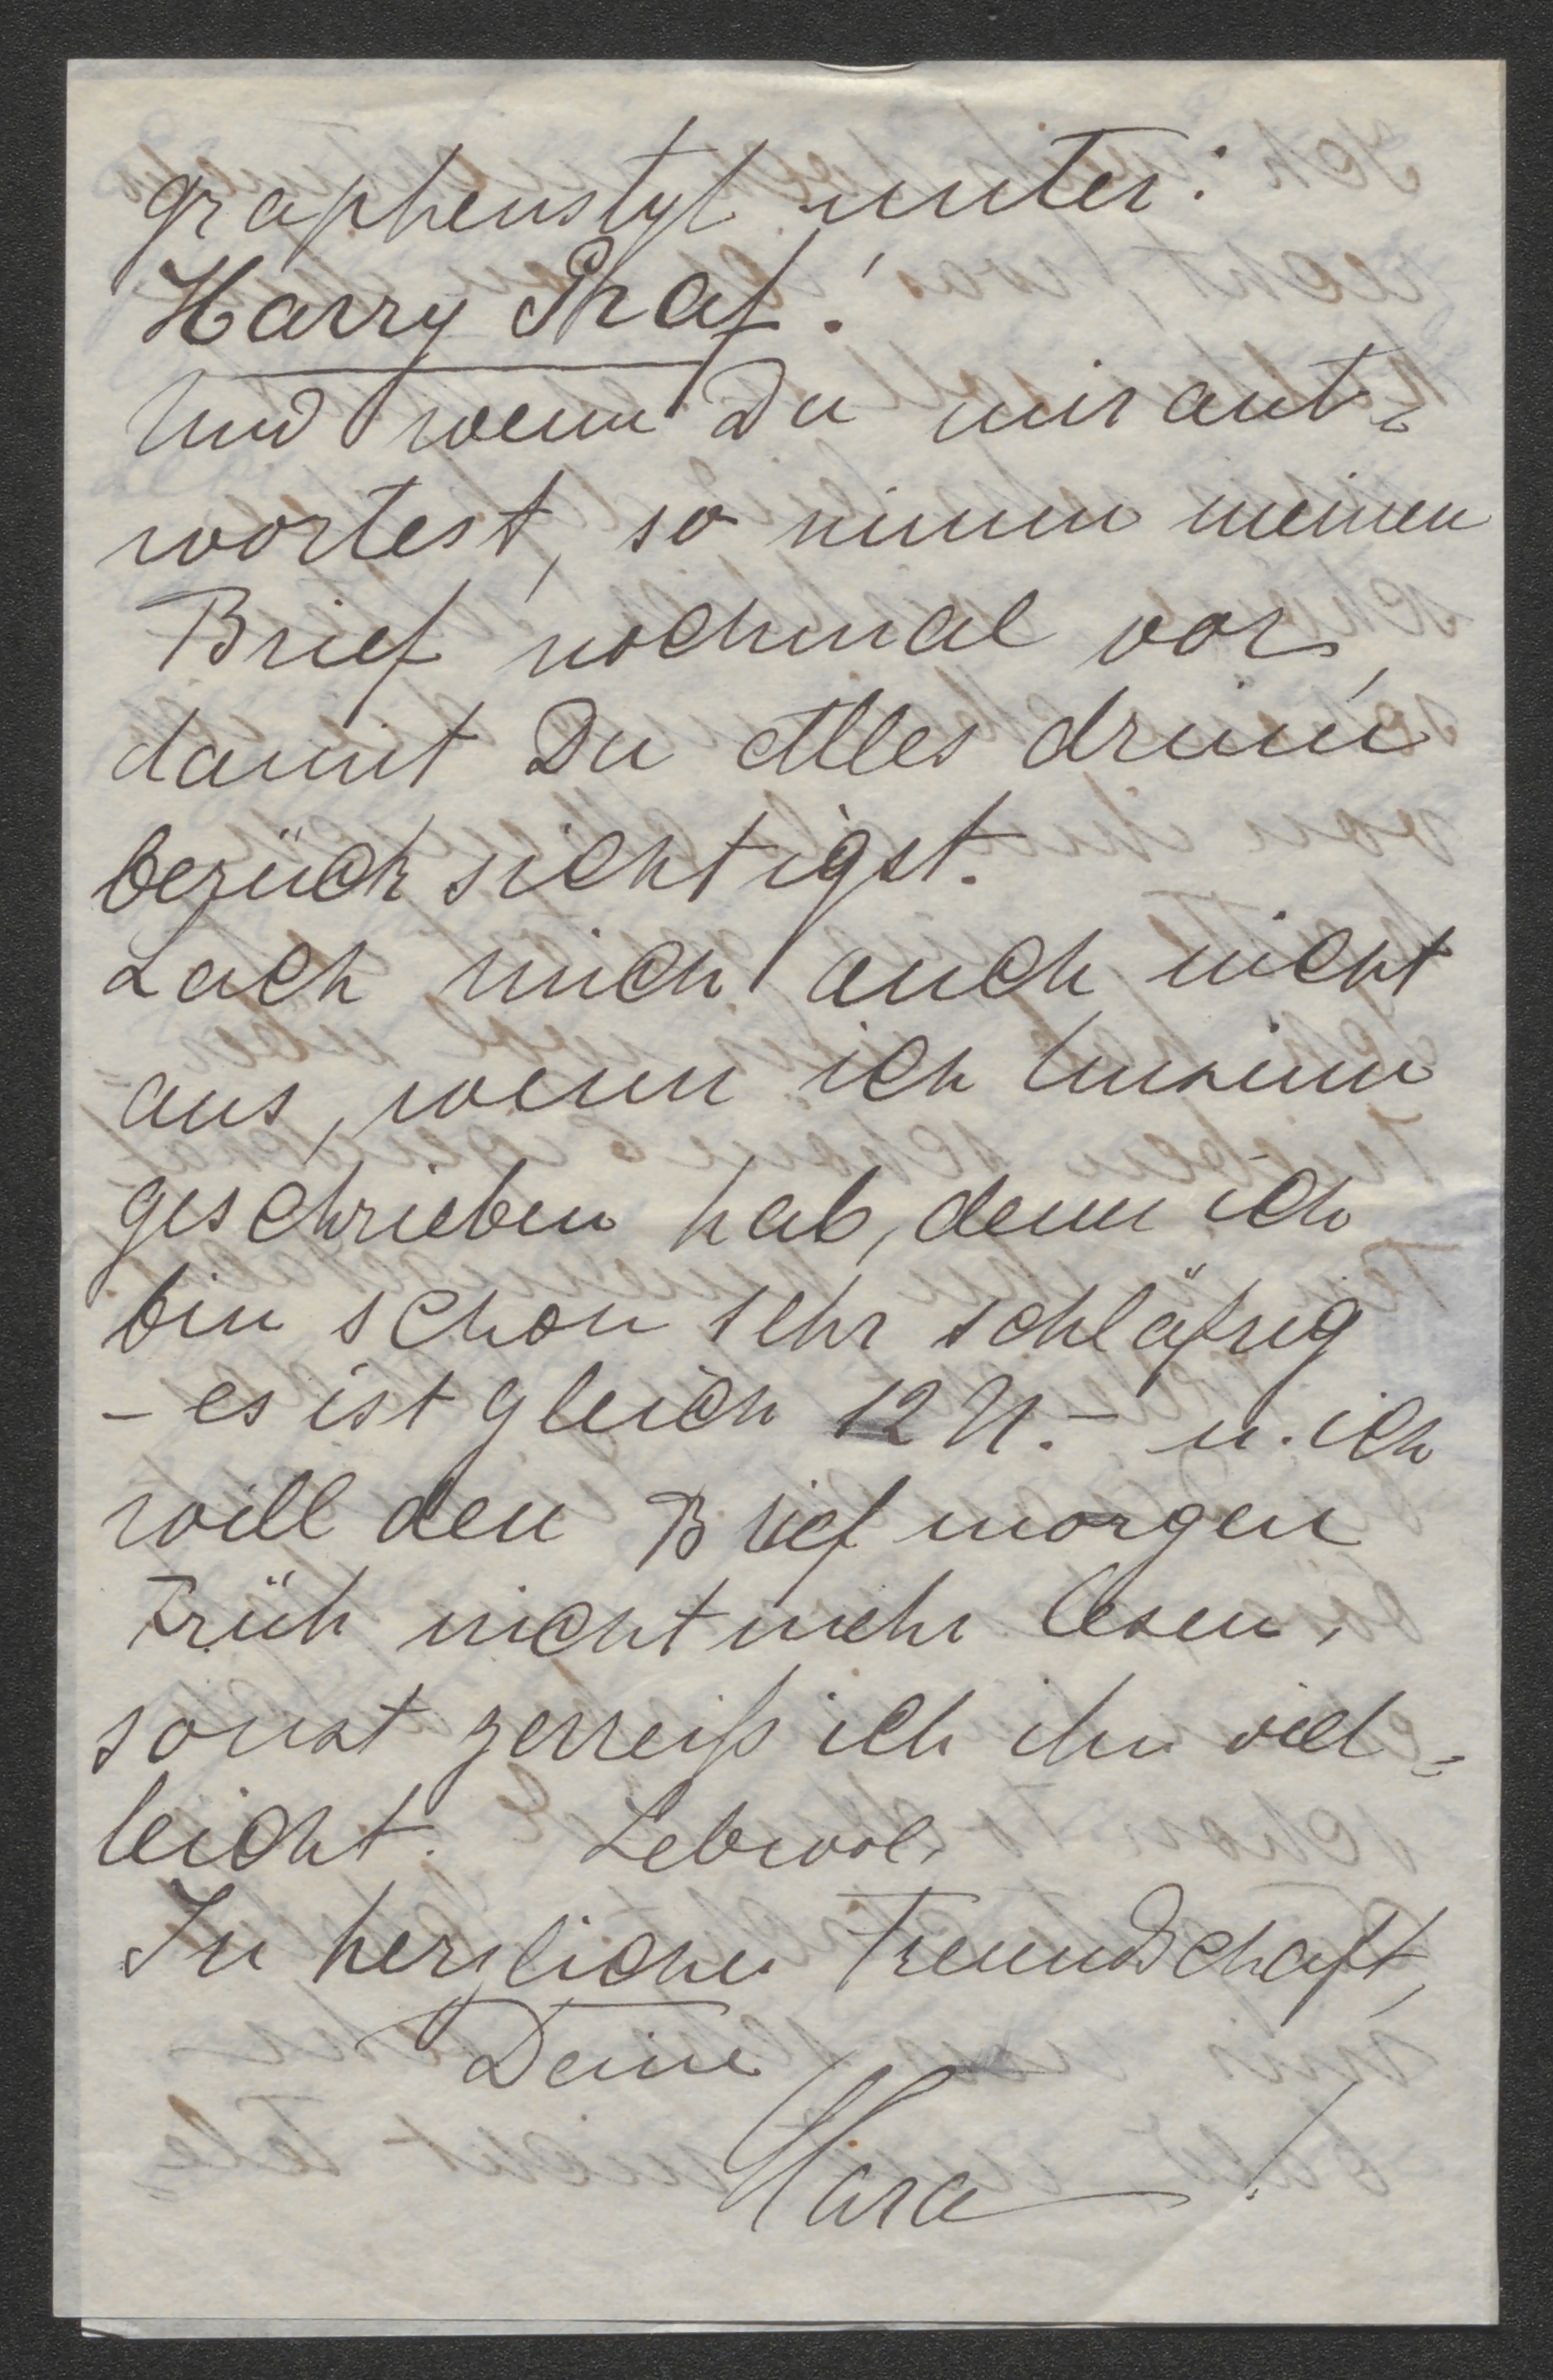 graphenstyl unter:
Harry Phaf!
Und wenn Du mir ant-
wortest, so nimm meinen
Brief nochmal vor,
damit Du Alles drinn
berücksichtigst.
Lach mich auch nicht
aus, wenn ich Unsinn
geschrieben hab, denn ich
bin schon sehr schläfrig
- es ist gleich 12 U. - u. ich
will den Brief morgen
Früh nicht mehr lesen,
sonst zerreiß ich ihn viel-
leicht. Lebwol.
In herzlicher Freundschaft,
Deine